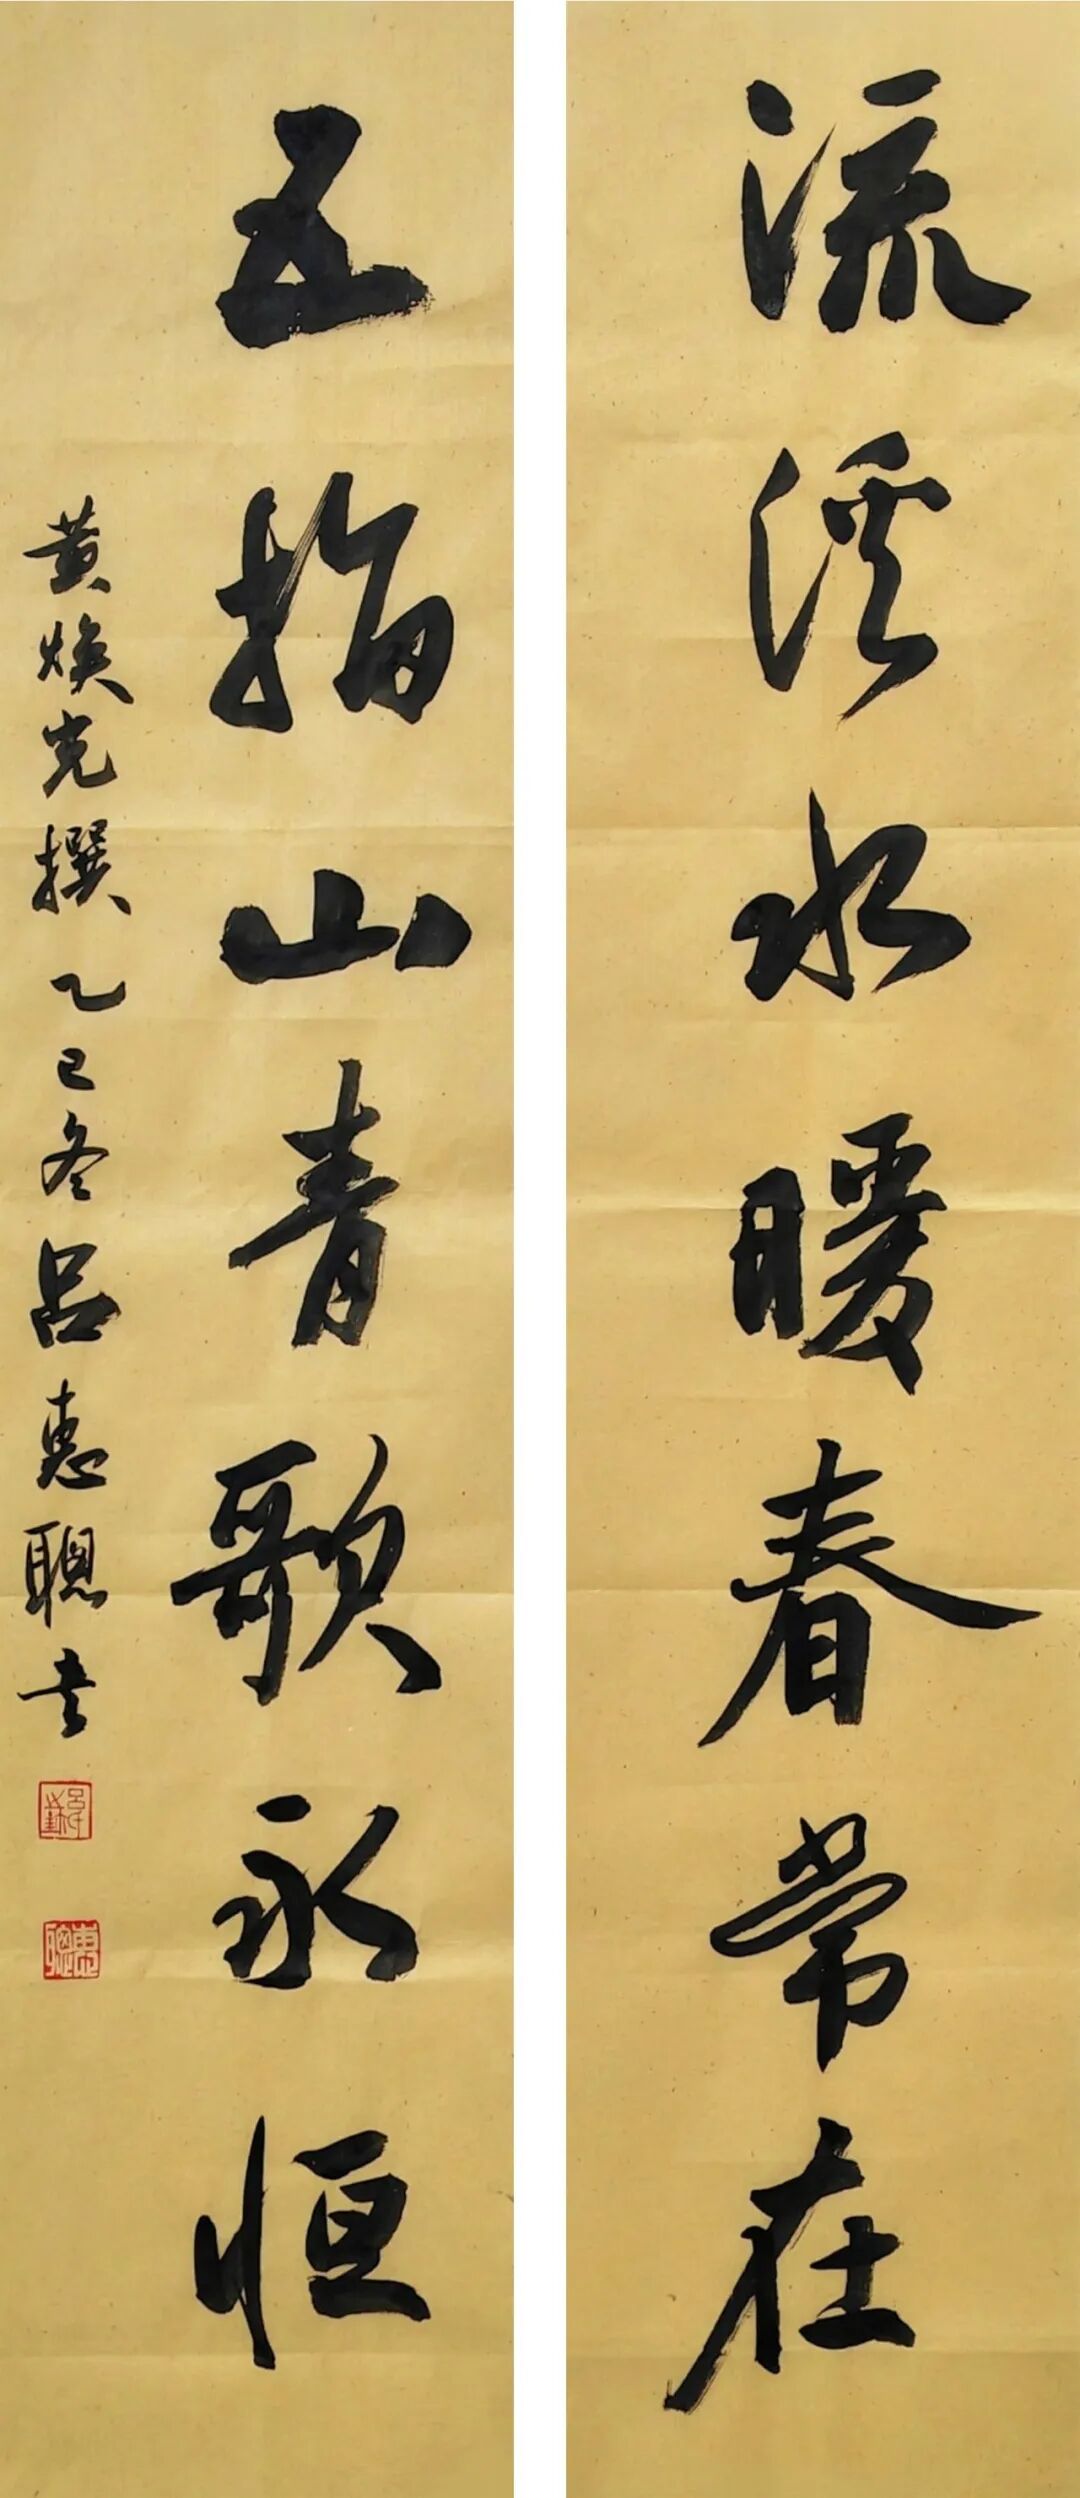 流溪水暖春常在
五指山青歌永恒
黄焕光撰 乙巳冬 吕惠聪书